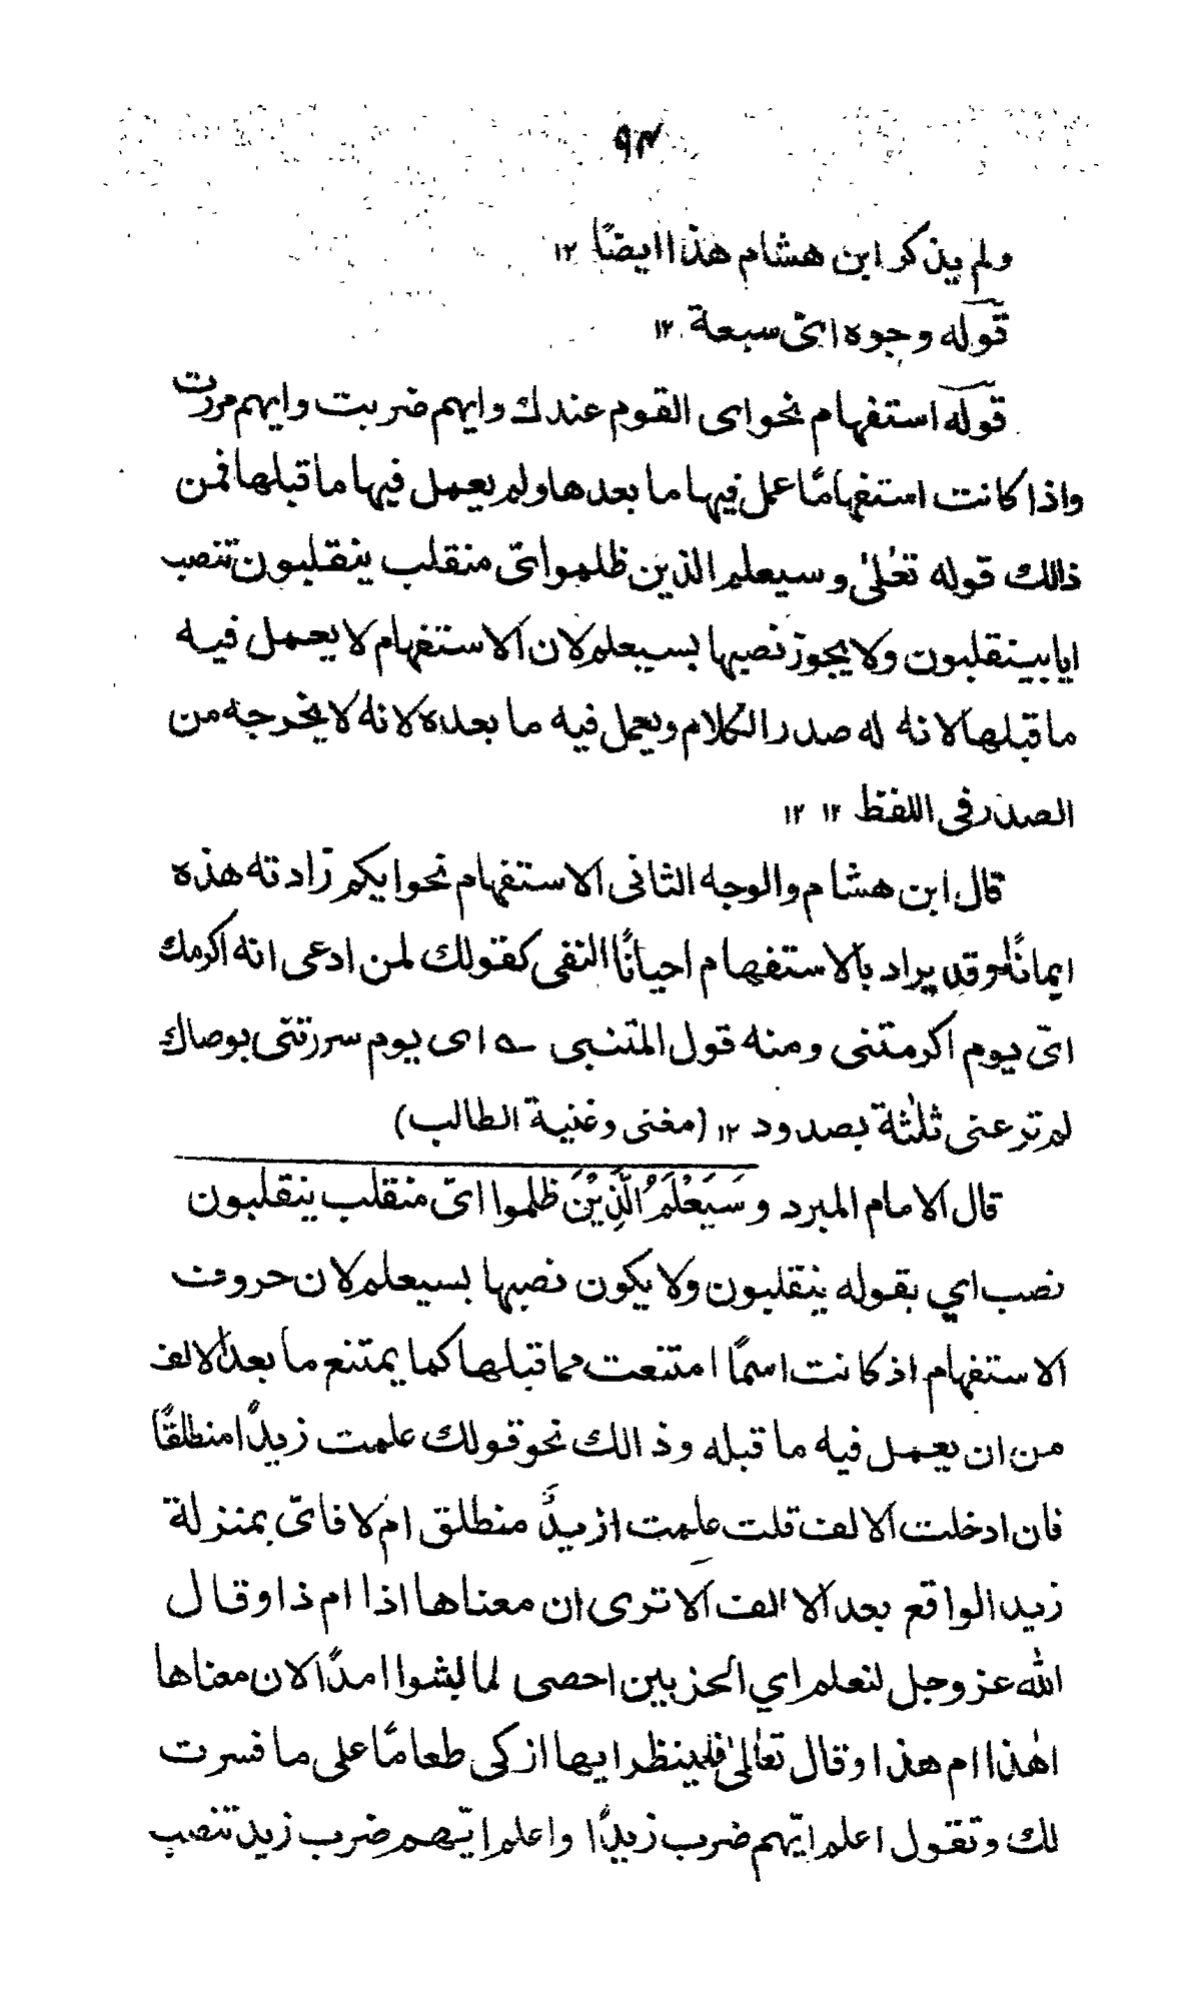 ٩٣
ولم يذكر ابن هشام هذا ايضًا ١٢
قوله وجوه اىّ سبعة ١٢
قوله استفهام نحواى القوم عندك وايهم ضربت وايهم مررت
واذا كانت استفهامًا عمل فيها ما بعدها ولم يعمل فيها ما قبلها فمن
ذالك قوله تعٰلىٰ وسيعلم الذين ظلموا اىّ منقلب ينقلبون تنصب
ايا بينقلبون ولا يجوز نصبها بسيعلم لان الاستفهام لا يعمل فيه
ما قبلها لانه له صدر الكلام ويعمل فيه ما بعده لانه لا يخرجه من
الصدر فى اللفظ ١٢ ١٢
قال ابن هشام والوجه الثانى الاستفهام نحو ايكم زادته هذه
ايمانًا وقد يراد بالاستفهام احيانًا النفى كقولك لمن ادعى انه اكرمك
اىّ يوم اكرمتنى ومنه قول المتنبى ؎ اى يوم سررتنى بوصاك
لم ترعنى ثلٰثة بصدود ١٢ (مغنى وغنية الطالب)
قال الامام المبرد وسَيَعْلَمُ الَّذِيْنَ ظلموا اىّ منقلب ينقلبون
نصب اي بقوله ينقلبون ولا يكون نصبها بسيعلم لان حروف
الاستفهام اذ كانت اسمًا امتنعت مما قبلها كما يمتنع ما بعد الالف
من ان يعمل فيه ما قبله وذالك نحو قولك علمت زيدًا منطلقًا
فان ادخلت الالف قلت علمت ازيدٌ منطلق ام لا فاىّ بمنزلة
زيد الواقع بعد الالف الا ترى ان معناها اذا ام ذا وقال
الله عز وجل لنعلم اي الحزبين احصى لما لبثوا امدًا لان معناها
اهٰذا ام هذا وقال تعالىٰ فلينظر ايها ازكى طعامًا على ما فسرت
لك وتقول اعلم ايّهم ضرب زيدًا واعلم ايّهم ضرب زيد تنصب